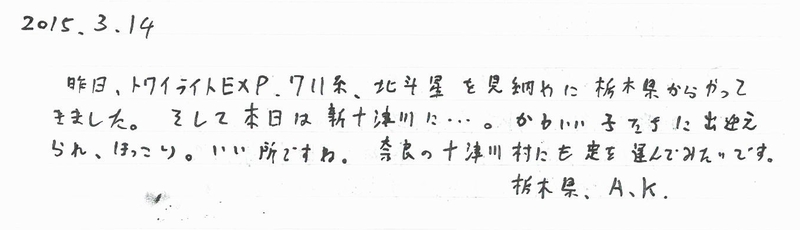 2015.3.14
昨日、トワイライトEXP、711系、北斗星を見納めに栃木県からやって
きました。そして本日は新十津川に…。かわいい子たちに出迎え
られ、ほっこり。いい所ですね。奈良の十津川村にも足を運んでみたいです。
栃木県、A.K.